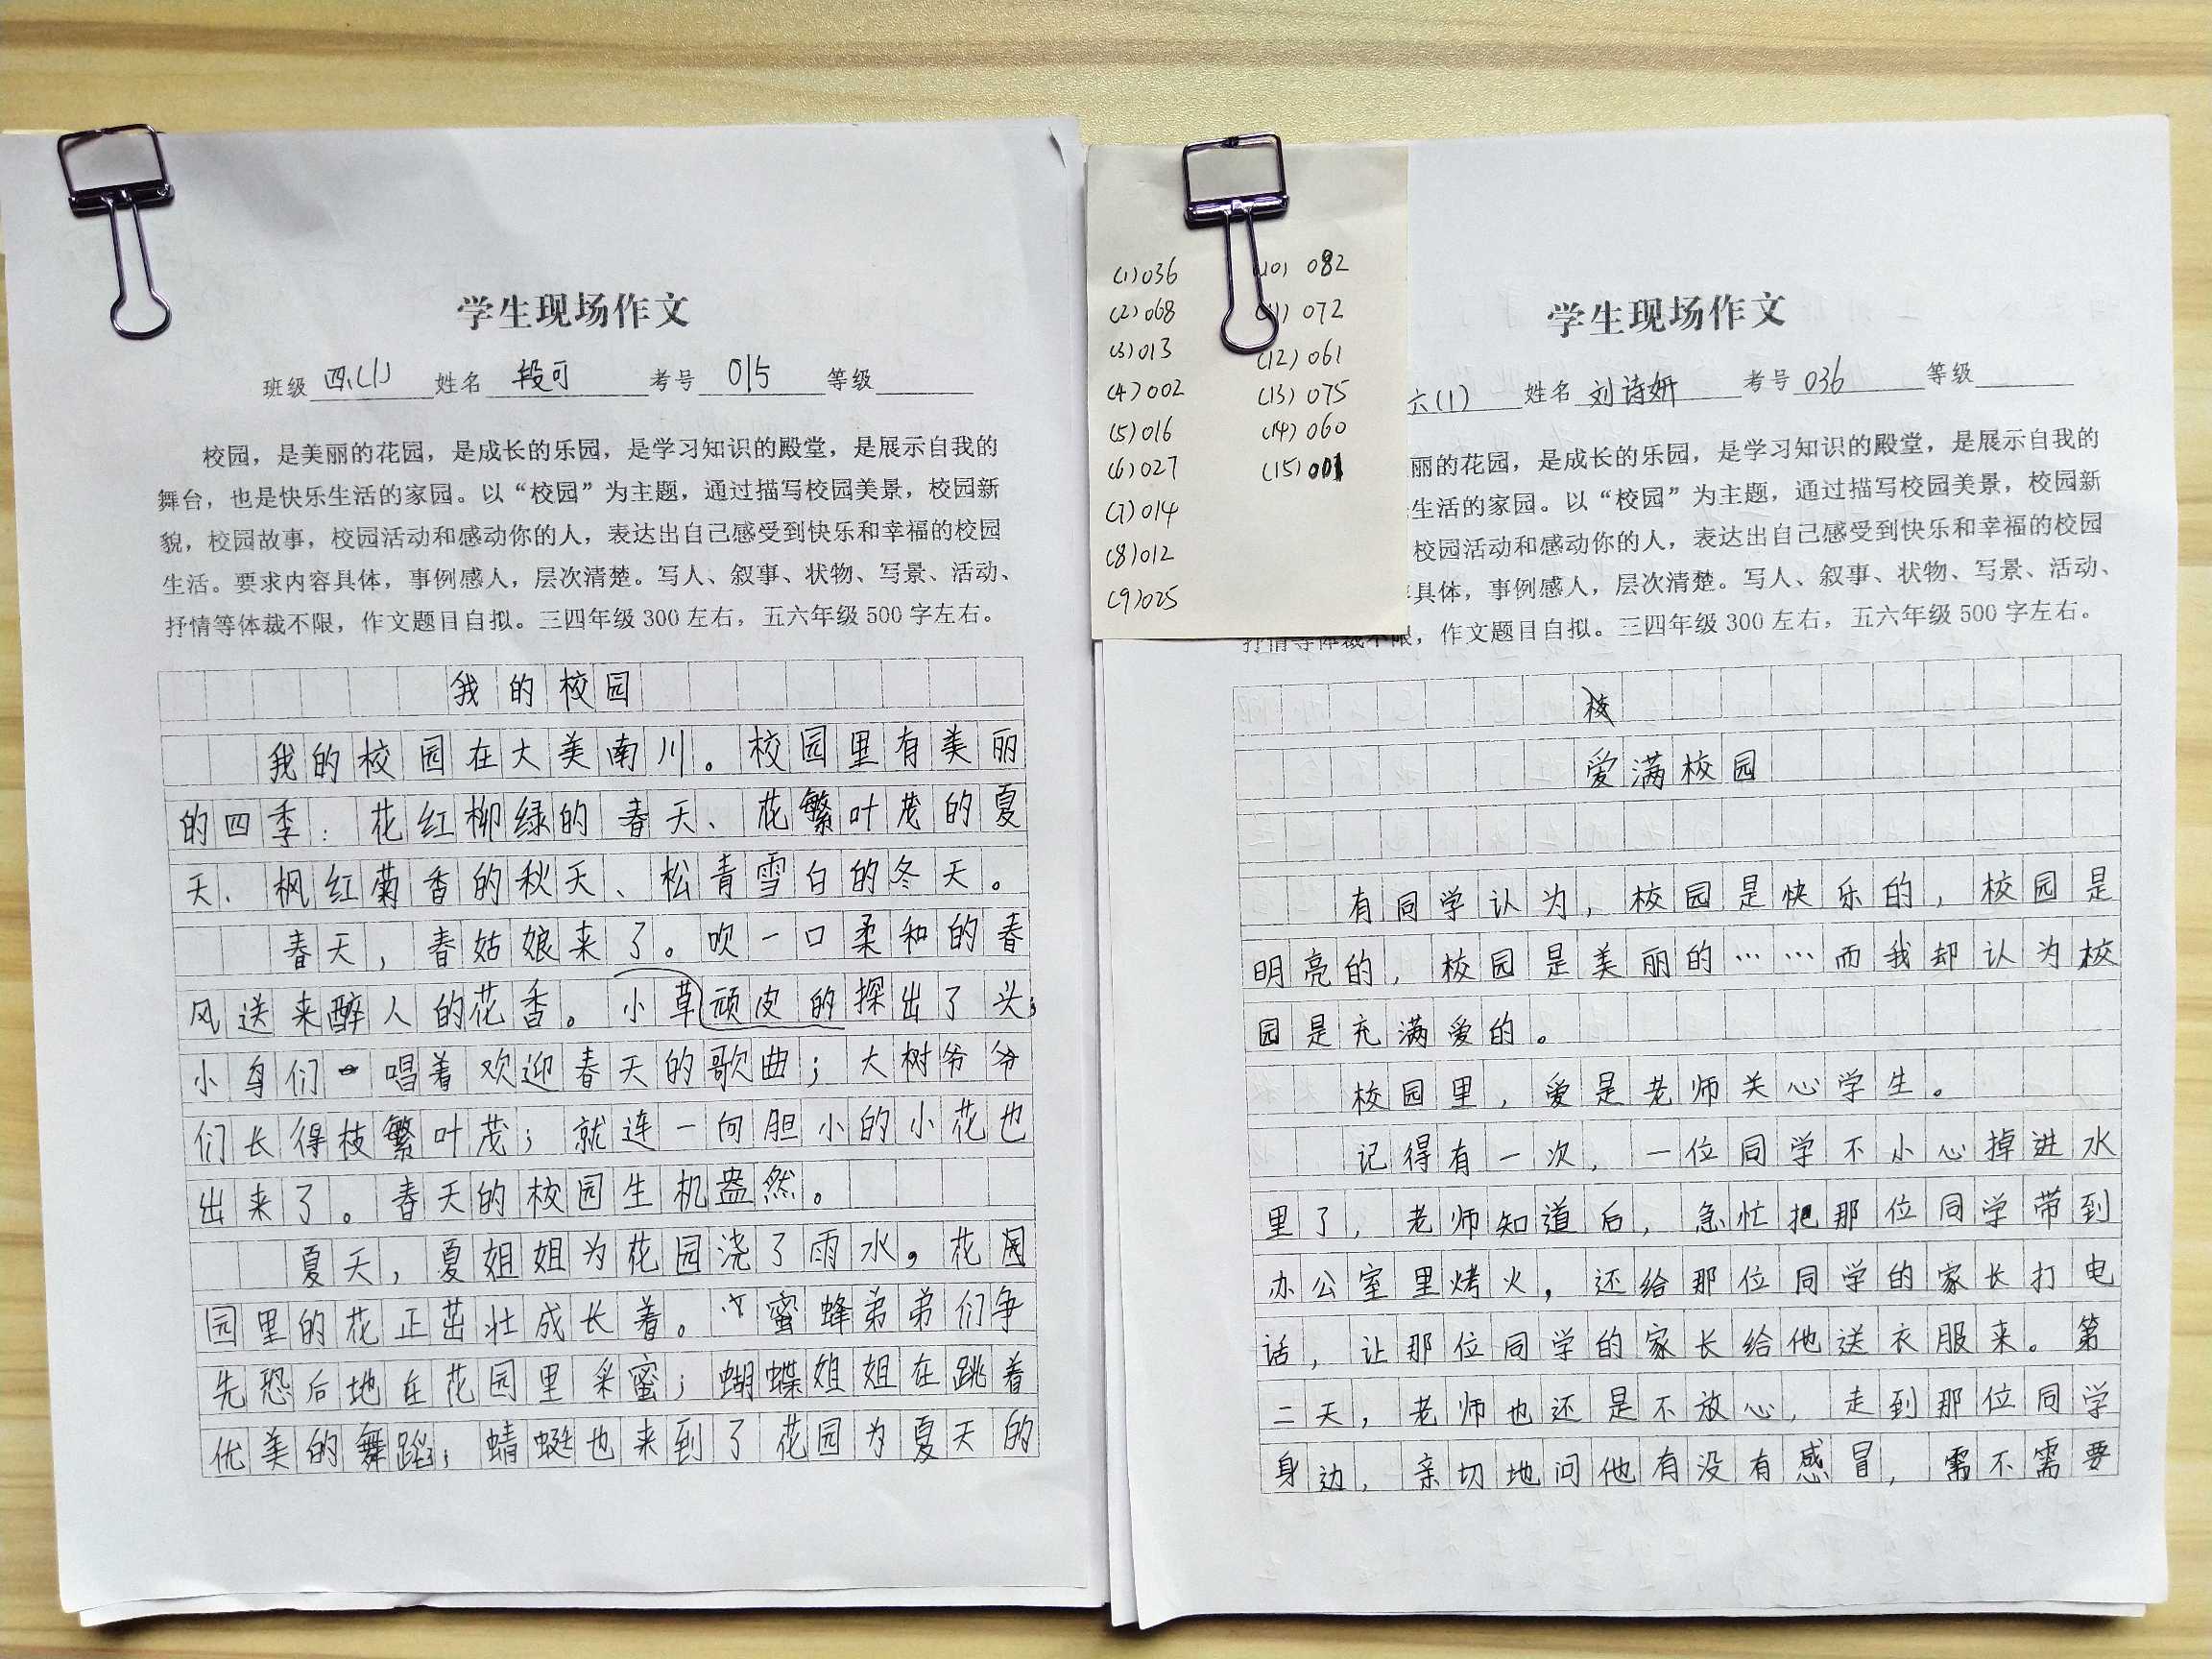 学生现场作文
班级 四(1) 姓名 段可 考号 015 等级
校园，是美丽的花园，是成长的乐园，是学习知识的殿堂，是展示自我的
舞台，也是快乐生活的家园。以“校园”为主题，通过描写校园美景，校园新
貌，校园故事，校园活动和感动你的人，表达出自己感受到快乐和幸福的校园
生活。要求内容具体，事例感人，层次清楚。写人、叙事、状物、写景、活动、
抒情等体裁不限，作文题目自拟。三四年级 300 左右，五六年级 500 字左右。
我的校园
我的校园在大美南川。校园里有美丽
的四季：花红柳绿的春天、花繁叶茂的夏
天、枫红菊香的秋天、松青雪白的冬天。
春天，春姑娘来了。吹一口柔和的春
风送来醉人的花香。小草顽皮的探出了头；
小鸟们唱着欢迎春天的歌曲；大树爷爷
们长得枝繁叶茂；就连一向胆小的小花也
出来了。春天的校园生机盎然。
夏天，夏姐姐为花园浇了雨水，花
园里的花正茁壮成长着。蜜蜂弟弟们争
先恐后地在花园里采蜜；蝴蝶姐姐在跳着
优美的舞蹈；蜻蜓也来到了花园为夏天的
(1)036
(2)068
(3)013
(4)002
(5)016
(6)027
(7)014
(8)012
(9)025
(10) 082
(11) 072
(12) 061
(13) 075
(14) 060
(15) 001
学生现场作文
六(1) 姓名 刘诗妍 考号 036 等级
丽的花园，是成长的乐园，是学习知识的殿堂，是展示自我的
生活的家园。以“校园”为主题，通过描写校园美景，校园新
校园活动和感动你的人，表达出自己感受到快乐和幸福的校园
具体，事例感人，层次清楚。写人、叙事、状物、写景、活动、
抒情等体裁不限，作文题目自拟。三四年级 300 左右，五六年级 500 字左右。
校
爱满校园
有同学认为，校园是快乐的，校园是
明亮的，校园是美丽的……而我却认为校
园是充满爱的。
校园里，爱是老师关心学生。
记得有一次，一位同学不小心掉进水
里了，老师知道后，急忙把那位同学带到
办公室里烤火，还给那位同学的家长打电
话，让那位同学的家长给他送衣服来。第
二天，老师也还是不放心，走到那位同学
身边，亲切地问他有没有感冒，需不需要